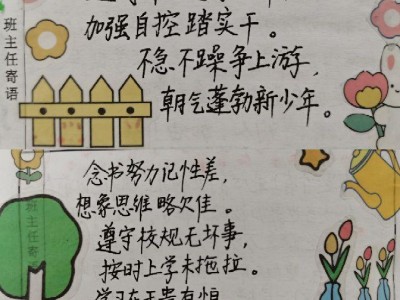 班主任寄语
加强自控踏实干。
不急不躁争上游，
朝气蓬勃新少年。
班主任寄语
念书努力记性差，
想象思维略欠佳。
遵守校规无坏事，
按时上学未拖拉。